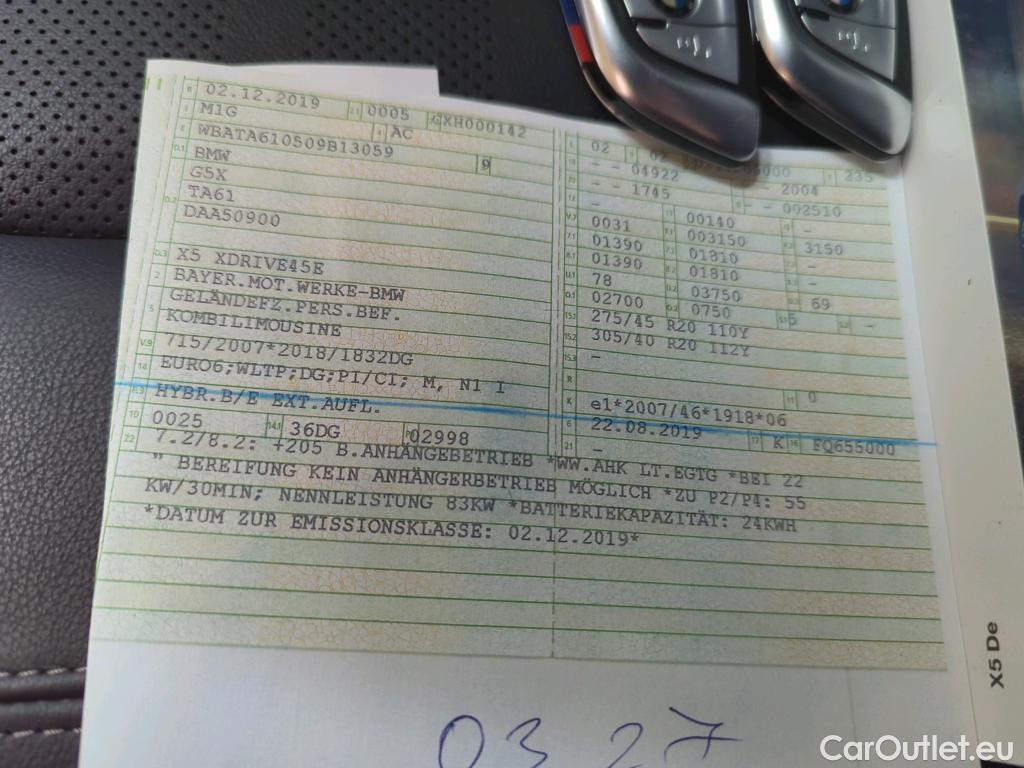 B 02.12.2019 2.1 0005 GXH000142
M1G AC
WBATA610509B13059 9
D.1 BMW
G5X
D.2 TA61
DAA50900
D.3 X5 XDRIVE45E
2 BAYER.MOT.WERKE-BMW
GELÄNDEFZ.PERS.BEF.
5 KOMBILIMOUSINE
V.9 715/2007*2018/1832DG
14 EURO6;WLTP;DG;PI/CI; M, N1 I
P.3 HYBR.B/E EXT.AUFL.
10 0025 14.1 36DG 02998
02 02 235
- - 04922 - - 2004
- - 1745 - - 002510
-
V.7 0031 00140 -
7.1 01390 003150 3150
8.1 01390 01810 -
U.1 78 01810 -
O.1 02700 03750 69
0750 S.1 5 S.2 -
15.1 275/45 R20 110Y
15.2 305/40 R20 112Y
15.3 -
R 0
K e1*2007/46*1918*06
6 22.08.2019 17 K 16 FQ655000
21 -
22 7.2/8.2: +205 B.ANHÄNGEBETRIEB *WW.AHK LT.EGTG *BEI 22
" BEREIFUNG KEIN ANHÄNGERBETRIEB MÖGLICH *ZU P2/P4: 55
KW/30MIN; NENNLEISTUNG 83KW *BATTERIEKAPAZITÄT: 24KWH
*DATUM ZUR EMISSIONSKLASSE: 02.12.2019*
03 27
X5 De
CarOutlet.eu